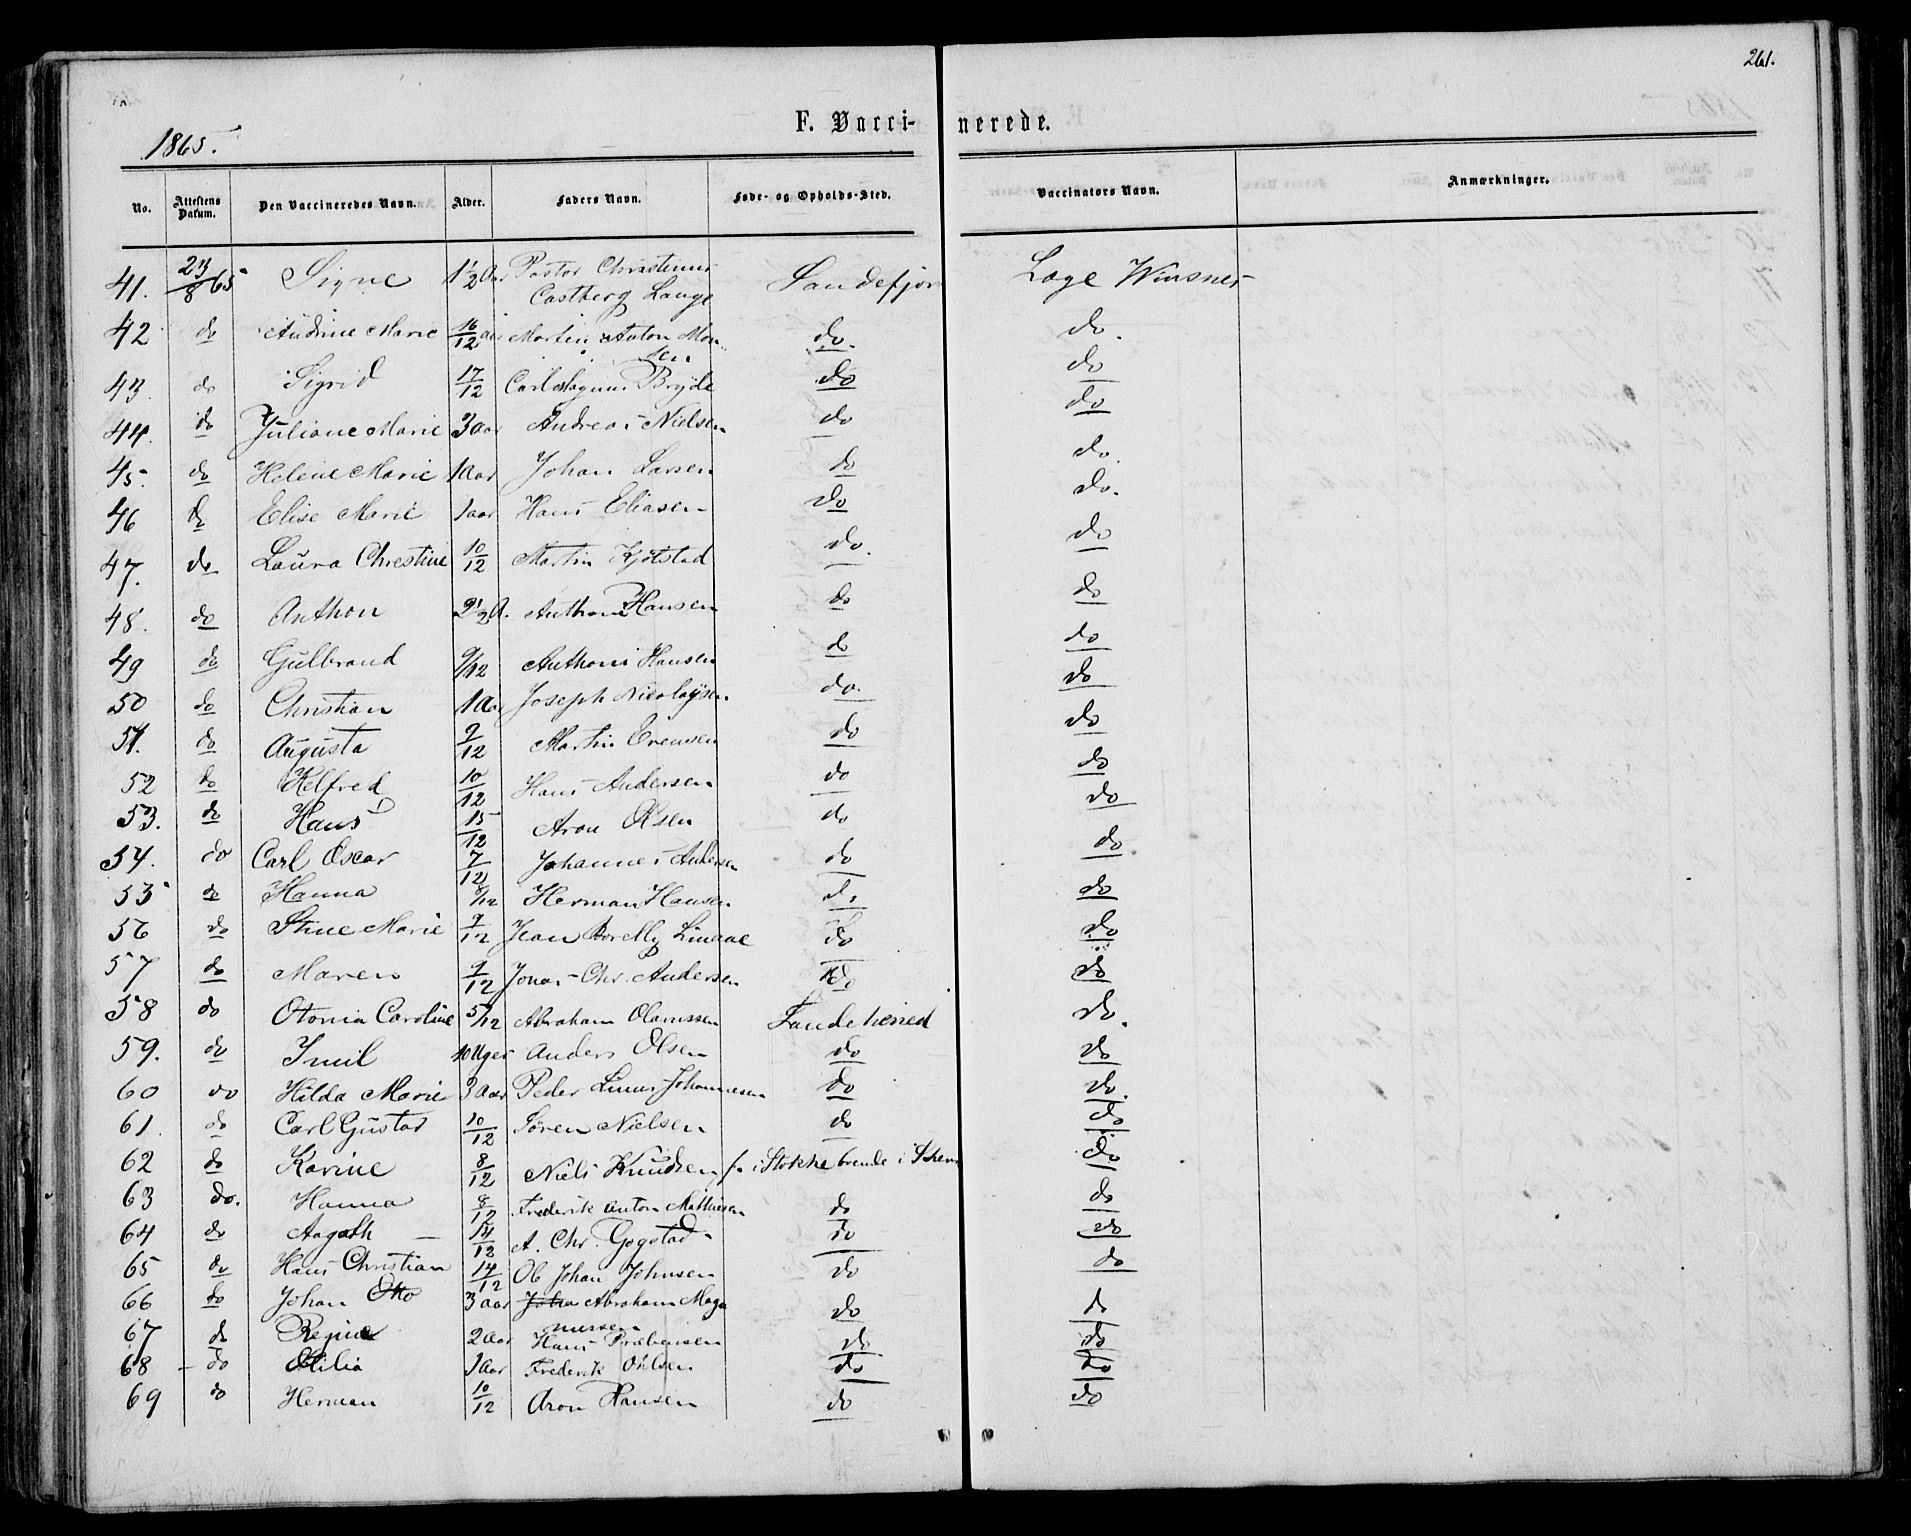 261.
F. Vacci- nerede.
1865.
No. Attestens Datum. Den Vaccineredes Navn. Alder. Faders Navn. Føde- og Opholds-Sted. Vaccinators Navn. Anmærkninger.
41. 23/8 65 Signe 1 1/2 A Pastor Christinus Castberg Lange Sandefjor Læge Winsnes
42 do Andrine Marie 16/12 aar Martin Anton Mon- sen do. do.
43. do Sigrid 17/12 Carl Magnus Bryde do do
44. do Juliane Marie 3 aar Andreas Nielsen do do
45. do Helene Marie 1 aar Johan Larsen do do.
46 do Elise Marie 1 aar Hans Eliasen do do.
47. do Laura Christine 10/12 Martin Kjølstad do. do
48. do Anthon 2 1/2 A. Anthoni Hansen do do
49 do Gulbrand 9/12 Anthoni Hansen do do
50 do Christian 1 Aar Joseph Nicolaysen do. do
51. do Augusta 9/12 Martin Evensen do do
52 do Helfred 10/12 Hans Andersen do do
53. do Hans 15/12 Aron Olsen do do
54. do Carl Oscar 7/12 Johannes Andersen do do
55 do Hanna 8/12 Herman Hansen do do
56 do Stine Marie 9/12 Jean Borelly Linaae do do
57 do Maren 9/12 Jonas Chr. Andersen do do
58 do Otonia Caroline 5/12 Abraham Olavussen Sandeherred do.
59. do Imil 10 Uger Anders Olsen do do
60 do Hilda Marie 3 aar Peder Linus Johannesen do do.
61. do Carl Gustav 10/12 Søren Nielsen do do
62 do Karine 8/12 Niels Knudsen f. i Stokke boende i Skeen do
63 do. Hanna 8/12 Frederik Anton Mathiesen do do
64 do Aagoth 14/12 A. Chr. Gogstad do do
65 do Hans Christian 14/12 Ol. Johan Johnsen do do
66 do Johan Otto 3 aar Johan Abraham Mag- nussen do do
67 do Regine 2 aar Hans Præbensen do do
68 - do Otilia 1 aar Frederik Ohlsen do do
69 do Herman 10/12 Aron Hansen do do